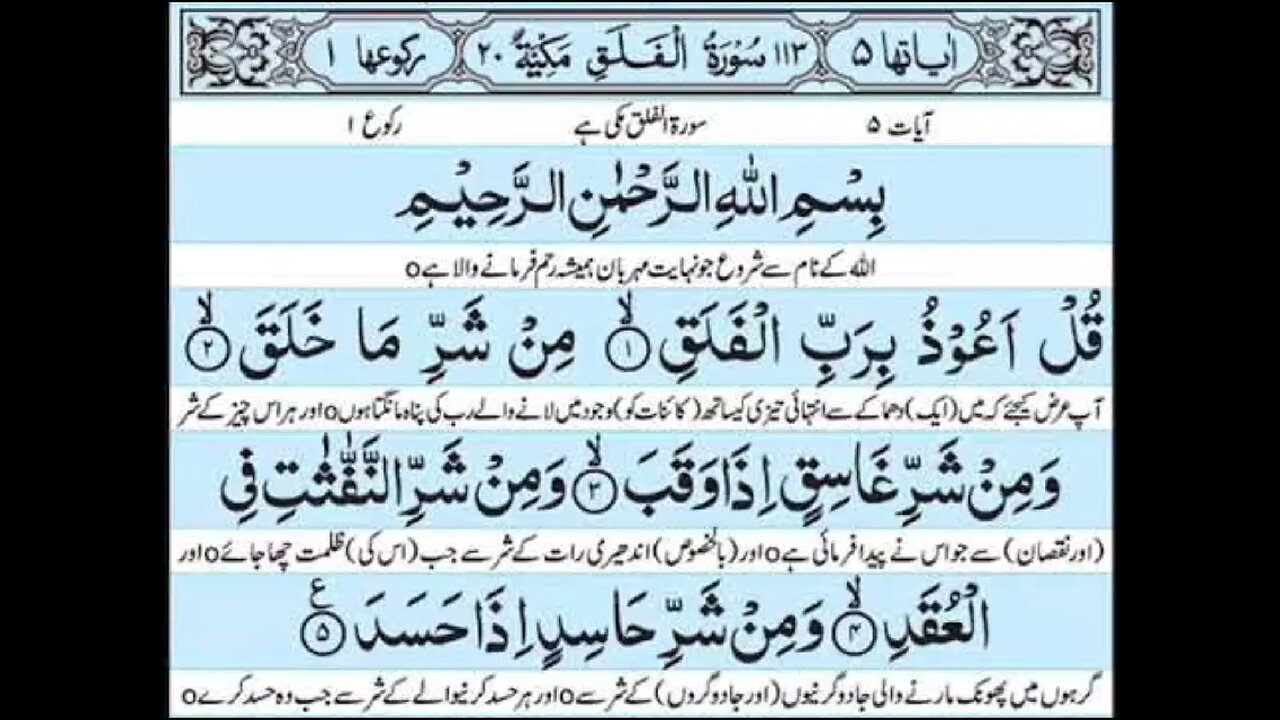 اٰیاتها ۵ ۱۱۳ سُوْرَةُ الْفَلَقِ مَكِّيَّةٌ ۲۰ رکوعها ۱
آیات ۵ سورۃ الفلق مکی ہے رکوع ۱
بِسْمِ اللهِ الرَّحْمٰنِ الرَّحِيْمِ
اللہ کے نام سے شروع جو نہایت مہربان ہمیشہ رحم فرمانے والا ہے o
قُلْ اَعُوْذُ بِرَبِّ الْفَلَقِ ۙ﴿۱﴾ مِنْ شَرِّ مَا خَلَقَ ۙ﴿۲﴾
آپ عرض کیجئے کہ میں (ایک) دھماکے سے انتہائی تیزی کیساتھ (کائنات کو) وجود میں لانے والے رب کی پناہ مانگتا ہوں o اور ہر اس چیز کے شر
وَمِنْ شَرِّ غَاسِقٍ اِذَا وَقَبَ ۙ﴿۳﴾ وَمِنْ شَرِّ النَّفّٰثٰتِ فِی
(اور نقصان) سے جو اس نے پیدا فرمائی ہے o اور (بالخصوص) اندھیری رات کے شر سے جب (اس کی) ظلمت چھا جائے o اور
الْعُقَدِ ۙ﴿۴﴾ وَمِنْ شَرِّ حَاسِدٍ اِذَا حَسَدَ ﴿۵﴾ ع
گرہوں میں پھونک مارنے والی جادوگرنیوں (اور جادوگروں) کے شر سے o اور ہر حسد کرنیوالے کے شر سے جب وہ حسد کرے o